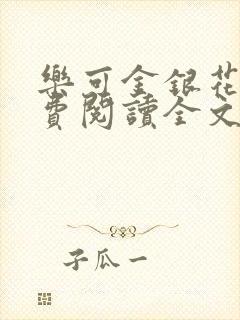 樂可金銀花
費閱讀全文
子瓜一